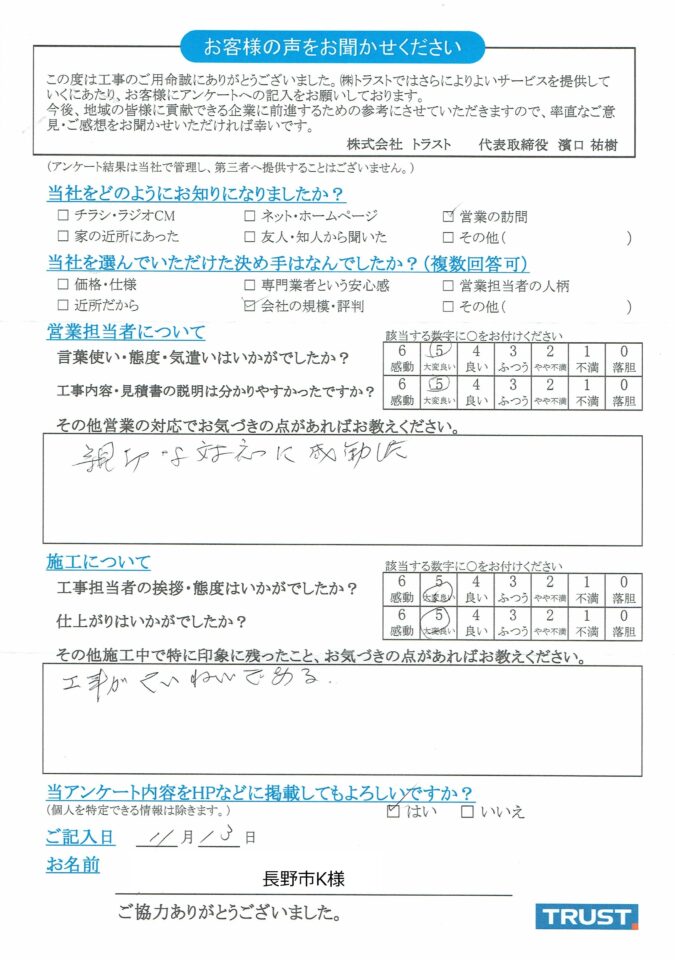 お客様の声をお聞かせください
この度は工事のご用命誠にありがとうございました。㈱トラストではさらによりよいサービスを提供して
いくにあたり、お客様にアンケートへの記入をお願いしております。
今後、地域の皆様に貢献できる企業に前進するための参考にさせていただきますので、率直なご意
見・ご感想をお聞かせいただければ幸いです。
株式会社 トラスト 代表取締役 濱口 祐樹
(アンケート結果は当社で管理し、第三者へ提供することはございません。)
当社をどのようにお知りになりましたか？
□ チラシ・ラジオCM □ ネット・ホームページ ☑ 営業の訪問
□ 家の近所にあった □ 友人・知人から聞いた □ その他( )
当社を選んでいただけた決め手はなんでしたか？(複数回答可)
□ 価格・仕様 □ 専門業者という安心感 □ 営業担当者の人柄
□ 近所だから ☑ 会社の規模・評判 □ その他( )
営業担当者について 該当する数字に○をお付けください
言葉使い・態度・気遣いはいかがでしたか？ 6 5 4 3 2 1 0
感動 大変良い 良い ふつう やや不満 不満 落胆
工事内容・見積書の説明は分かりやすかったですか？ 6 5 4 3 2 1 0
感動 大変良い 良い ふつう やや不満 不満 落胆
その他営業の対応でお気づきの点があればお教えください。
親切な対応に感動した
施工について 該当する数字に○をお付けください
工事担当者の挨拶・態度はいかがでしたか？ 6 5 4 3 2 1 0
感動 大変良い 良い ふつう やや不満 不満 落胆
仕上がりはいかがでしたか？ 6 5 4 3 2 1 0
感動 大変良い 良い ふつう やや不満 不満 落胆
その他施工中で特に印象に残ったこと、お気づきの点があればお教えください。
工事がていねいである.
当アンケート内容をHPなどに掲載してもよろしいですか？
(個人を特定できる情報は除きます。) ☑ はい □ いいえ
ご記入日 11 月 13 日
お名前
長野市K様
ご協力ありがとうございました。
TRUST